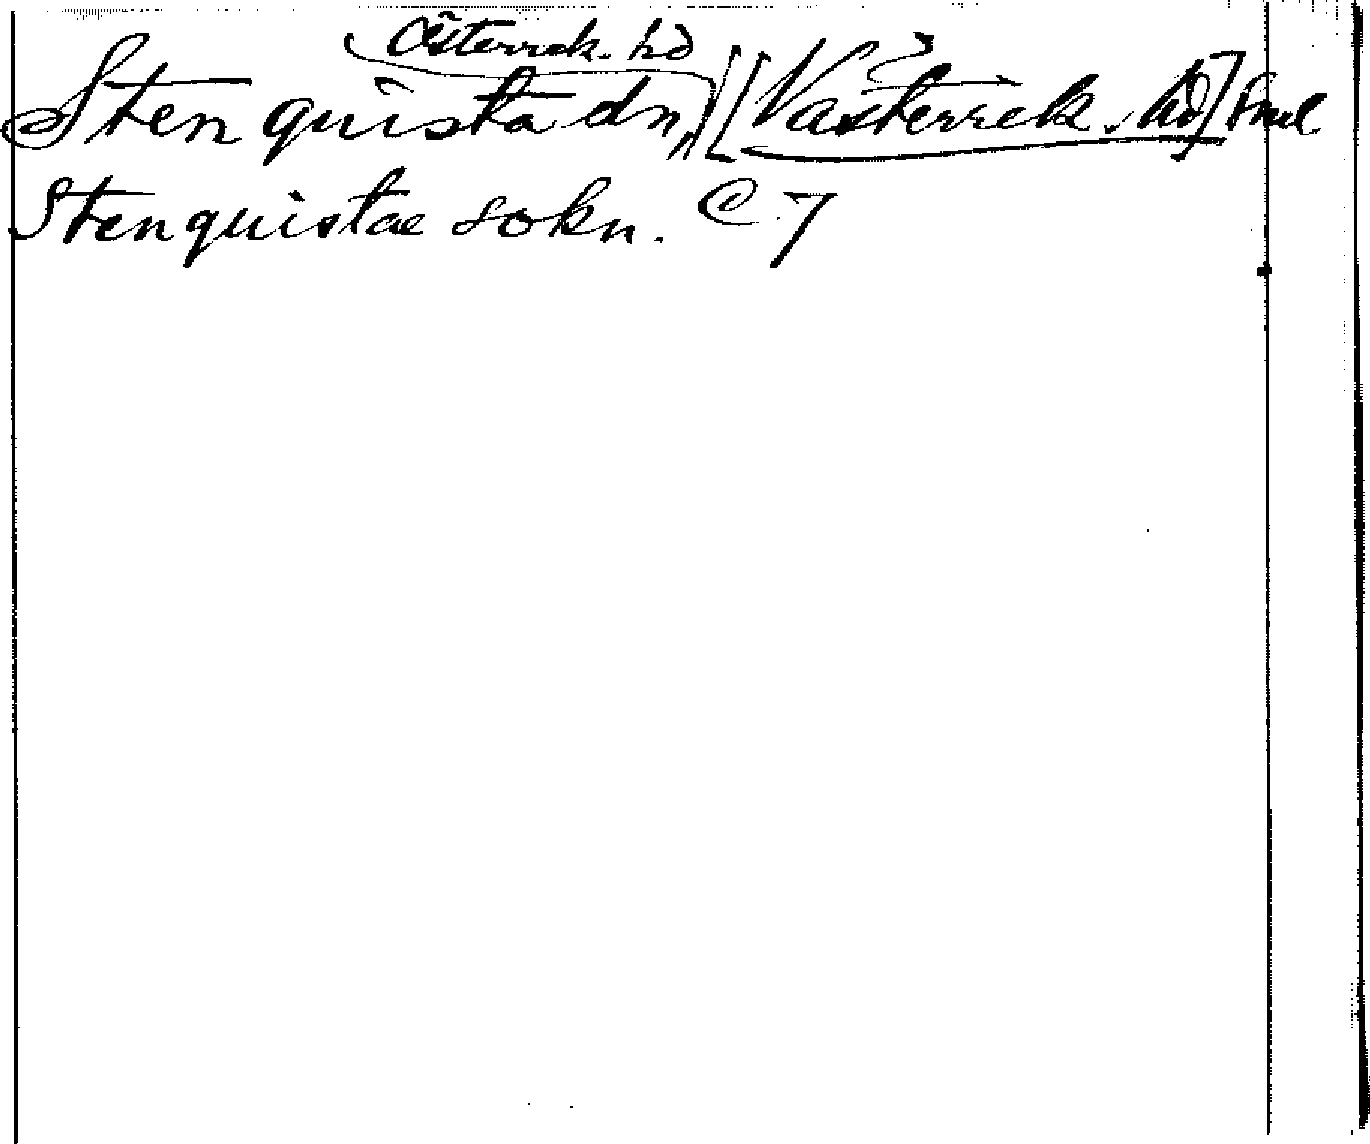 Österrek. hd
Stenquista dn, [Västerrek. hd] Sml
Stenquistae sokn. C 7